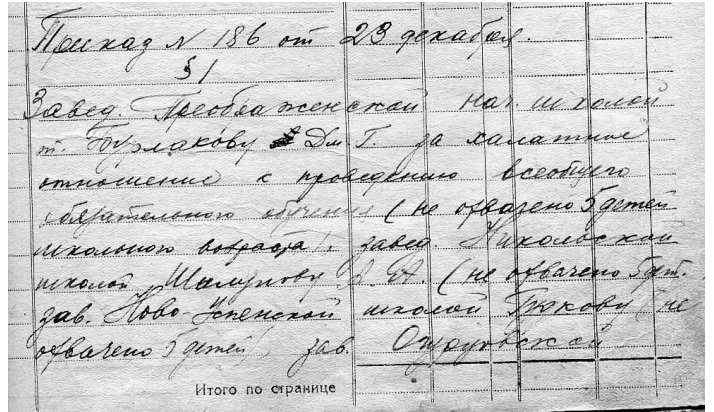 Приказ № 186 от 23 декабря.
§ 1
Завед. Преображенской нач. школой
т. Бурлакову Дм Г. за халатное
отношение к проведению всеобщего
обязательного обучения (не охвачено 5 детей
школьного возраста), завед. Никольской
школой А. (не охвачено 5 дет.
зав. Ново-Успенской школой (не
охвачено 5 детей, зав.
Итого по странице